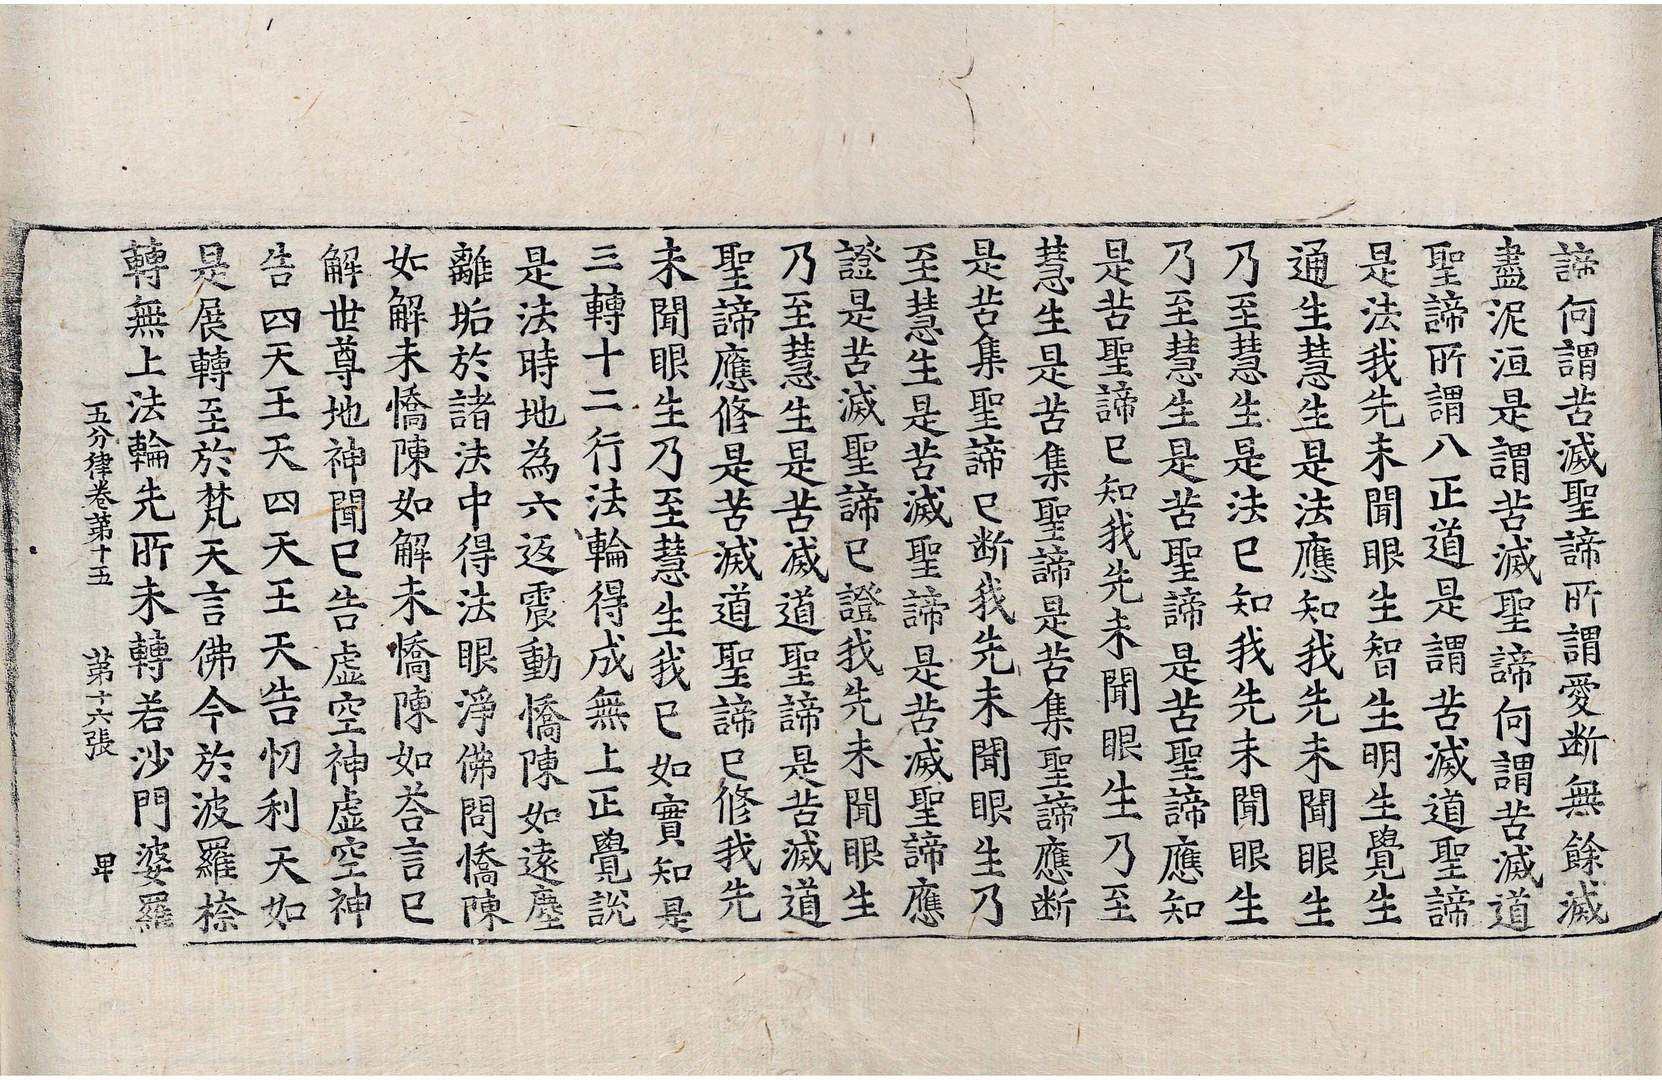 諦何謂苦滅聖諦所謂愛断無餘滅
盡泥洹是謂苦滅聖諦何謂苦滅道
聖諦所謂八正道是謂苦滅道聖諦
是法我先未聞眼生智生明生覺生
通生慧生是法應知我先未聞眼生
乃至慧生是法已知我先未聞眼生
乃至慧生是苦聖諦是苦聖諦應知
是苦聖諦已知我先未聞眼生乃至
慧生是苦集聖諦是苦集聖諦應断
是苦集聖諦已断我先未聞眼生乃
至慧生是苦滅聖諦是苦滅聖諦應
證是苦滅聖諦已證我先未聞眼生
乃至慧生是苦滅道聖諦是苦滅道
聖諦應修是苦滅道聖諦已修我先
未聞眼生乃至慧生我已如實知是
三轉十二行法輪得成無上正覺說
是法時地為六返震動憍陳如遠塵
離垢於諸法中得法眼淨佛問憍陳
如解未憍陳如解未憍陳如荅言已
解世尊地神聞已告虛空神虛空神
告四天王天四天王天告忉利天如
是展轉至於梵天言佛今於波羅㮈
轉無上法輪先所未轉若沙門婆羅
五分律卷第十五　第十六張　卑